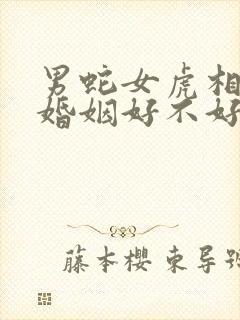 男蛇女虎相
婚姻好不好
藤本樱 束导跟